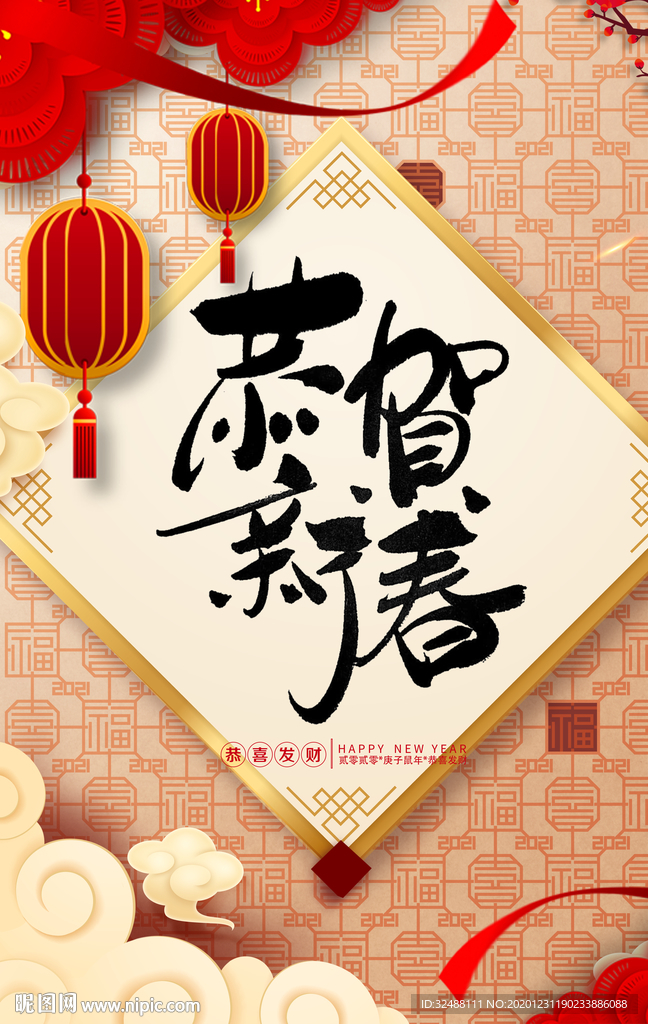 恭贺
新春
恭喜发财
HAPPY NEW YEAR
贰零贰零*庚子鼠年*恭喜发财
福 2021
昵图网 www.nipic.com
ID:32488111 NO:20201231190233886088